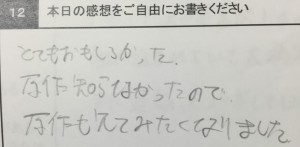 12 本日の感想をご自由にお書きください
とてもおもしろかった.
原作知らなかったので.
原作も見てみたくなりました